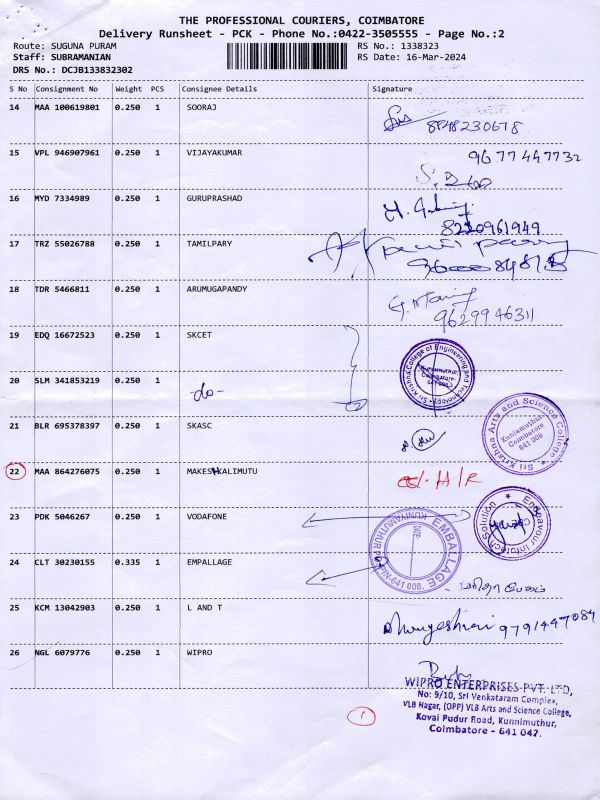 THE PROFESSIONAL COURIERS, COIMBATORE
Delivery Runsheet - PCK - Phone No.:0422-3505555 - Page No.:2
Route: SUGUNA PURAM RS No.: 1338323
Staff: SUBRAMANIAN RS Date: 16-Mar-2024
DRS No.: DCJB133832302
S No Consignment No Weight PCS Consignee Details Signature
14 MAA 100619801 0.250 1 SOORAJ
15 VPL 946907961 0.250 1 VIJAYAKUMAR 9677447732
16 MYD 7334989 0.250 1 GURUPRASHAD
8220961949
17 TRZ 55026788 0.250 1 TAMILPARY
18 TDR 5466811 0.250 1 ARUMUGAPANDY
9629946311
19 EDQ 16672523 0.250 1 SKCET
Sri Krishna College of Engineering and Technology
Kuniamuthur, Coimbatore
20 SLM 341853219 0.250 1 -do-
21 BLR 695378397 0.250 1 SKASC
Sri Krishna Arts and Science College
Kuniamuthur
Coimbatore
641 008
22 MAA 864276075 0.250 1 MAKESHKALIMUTU H/R
23 PDK 5046267 0.250 1 VODAFONE
Endeavour Infotech Solution
CBE
24 CLT 30230155 0.335 1 EMPALLAGE
EMBALLAGE
KUNIYAMUTHUR
PIN-641 008.
25 KCM 13042903 0.250 1 L AND T
9791447084
26 NGL 6079776 0.250 1 WIPRO
WIPRO ENTERPRISES PVT. LTD,
No: 9/10, Sri Venkataram Complex,
VLB Nagar, (OPP) VLB Arts and Science College,
Kovai Pudur Road, Kunnimuthur,
Coimbatore - 641 042.
1